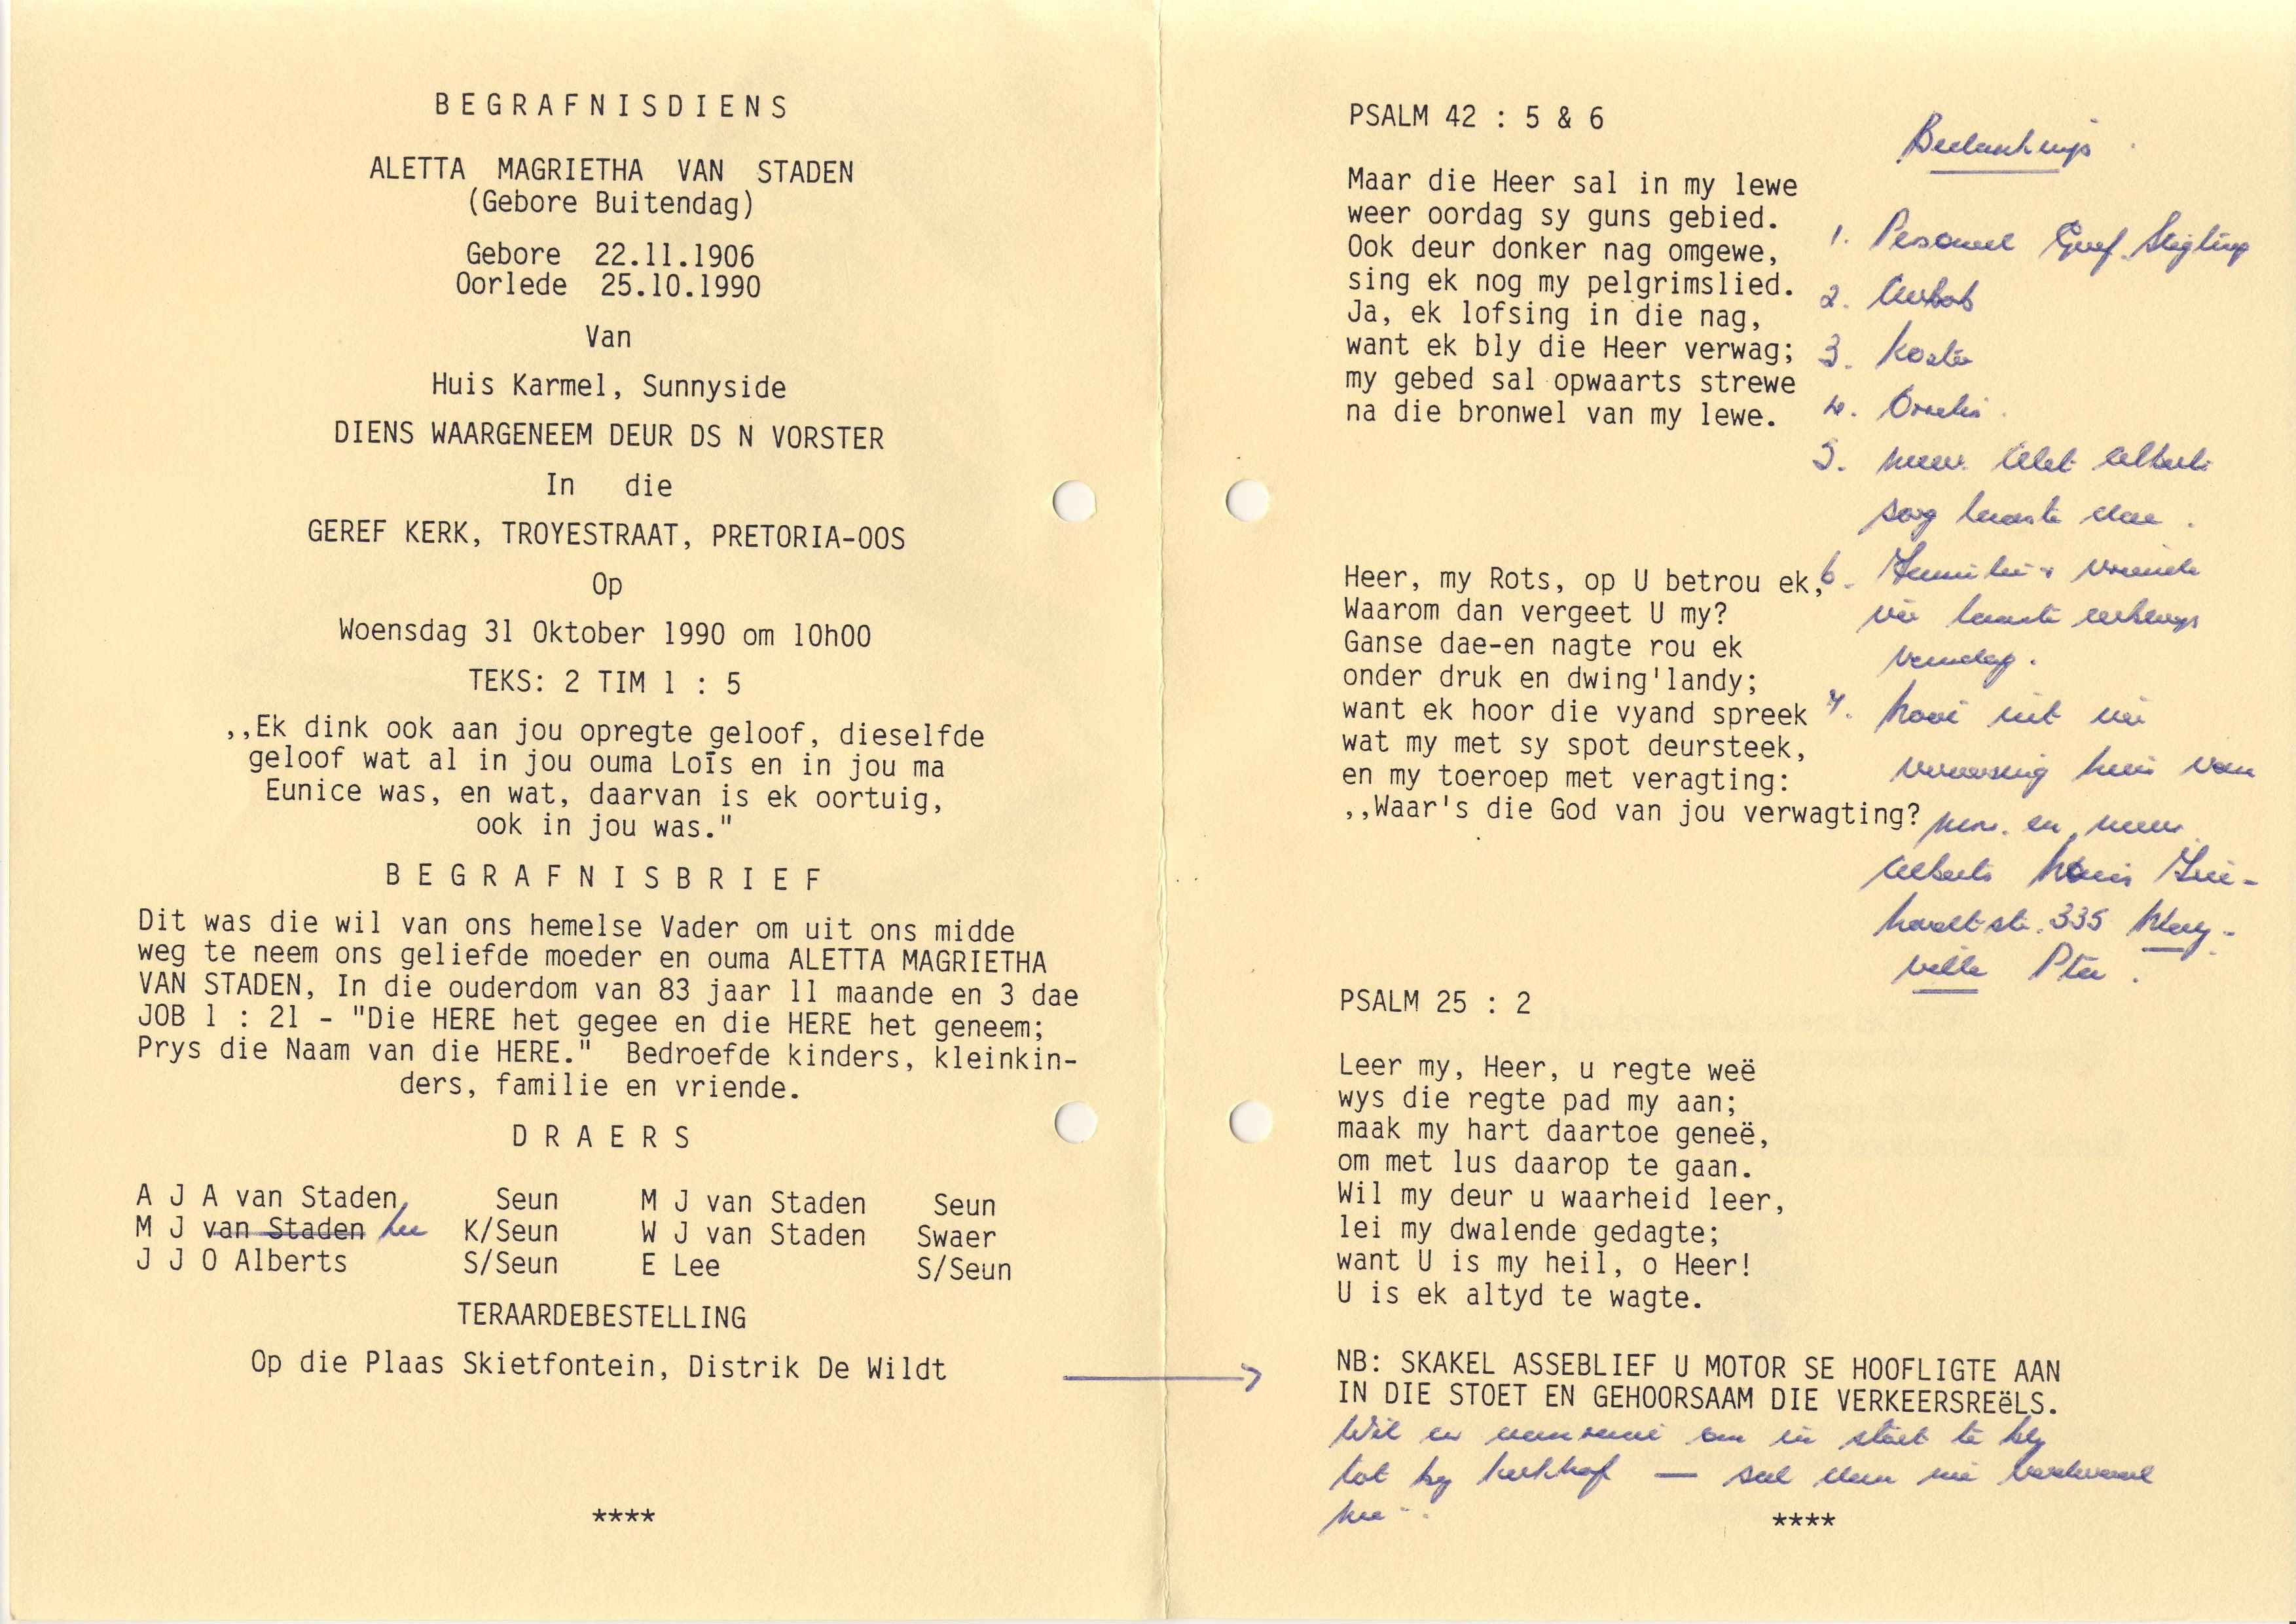 B E G R A F N I S D I E N S
ALETTA MAGRIETHA VAN STADEN
(Gebore Buitendag)
Gebore 22.11.1906
Oorlede 25.10.1990
Van
Huis Karmel, Sunnyside
DIENS WAARGENEEM DEUR DS N VORSTER
In die
GEREF KERK, TROYESTRAAT, PRETORIA-OOS
Op
Woensdag 31 Oktober 1990 om 10h00
TEKS: 2 TIM 1 : 5
,,Ek dink ook aan jou opregte geloof, dieselfde
geloof wat al in jou ouma Loïs en in jou ma
Eunice was, en wat, daarvan is ek oortuig,
ook in jou was."
B E G R A F N I S B R I E F
Dit was die wil van ons hemelse Vader om uit ons midde
weg te neem ons geliefde moeder en ouma ALETTA MAGRIETHA
VAN STADEN, In die ouderdom van 83 jaar 11 maande en 3 dae
JOB 1 : 21 - "Die HERE het gegee en die HERE het geneem;
Prys die Naam van die HERE." Bedroefde kinders, kleinkin-
ders, familie en vriende.
D R A E R S
A J A van Staden, Seun M J van Staden Seun
M J van Staden Lee K/Seun W J van Staden Swaer
J J O Alberts S/Seun E Lee S/Seun
TERAARDEBESTELLING
Op die Plaas Skietfontein, Distrik De Wildt
****
PSALM 42 : 5 & 6
Maar die Heer sal in my lewe
weer oordag sy guns gebied.
Ook deur donker nag omgewe,
sing ek nog my pelgrimslied.
Ja, ek lofsing in die nag,
want ek bly die Heer verwag;
my gebed sal opwaarts strewe
na die bronwel van my lewe.
Heer, my Rots, op U betrou ek,
Waarom dan vergeet U my?
Ganse dae-en nagte rou ek
onder druk en dwing'landy;
want ek hoor die vyand spreek
wat my met sy spot deursteek,
en my toeroep met veragting:
,,Waar's die God van jou verwagting?
Bedankings
1. Personeel Geref. Stigting
2.
3. Koster
4. Orrelis
5. mev. Alet Alberts
sorg laaste dae.
6. Familie & vriende
vir laaste
vandag.
7. Nooi uit vir
verversing huis van
mnr. en mev.
Alberts
str. 335
ville Pta.
PSALM 25 : 2
Leer my, Heer, u regte weë
wys die regte pad my aan;
maak my hart daartoe geneë,
om met lus daarop te gaan.
Wil my deur u waarheid leer,
lei my dwalende gedagte;
want U is my heil, o Heer!
U is ek altyd te wagte.
NB: SKAKEL ASSEBLIEF U MOTOR SE HOOFLIGTE AAN
IN DIE STOET EN GEHOORSAAM DIE VERKEERSREëLS.
Wil u om in stoet te bly
tot by kerkhof — sal dan nie verdwaal
nie.
****